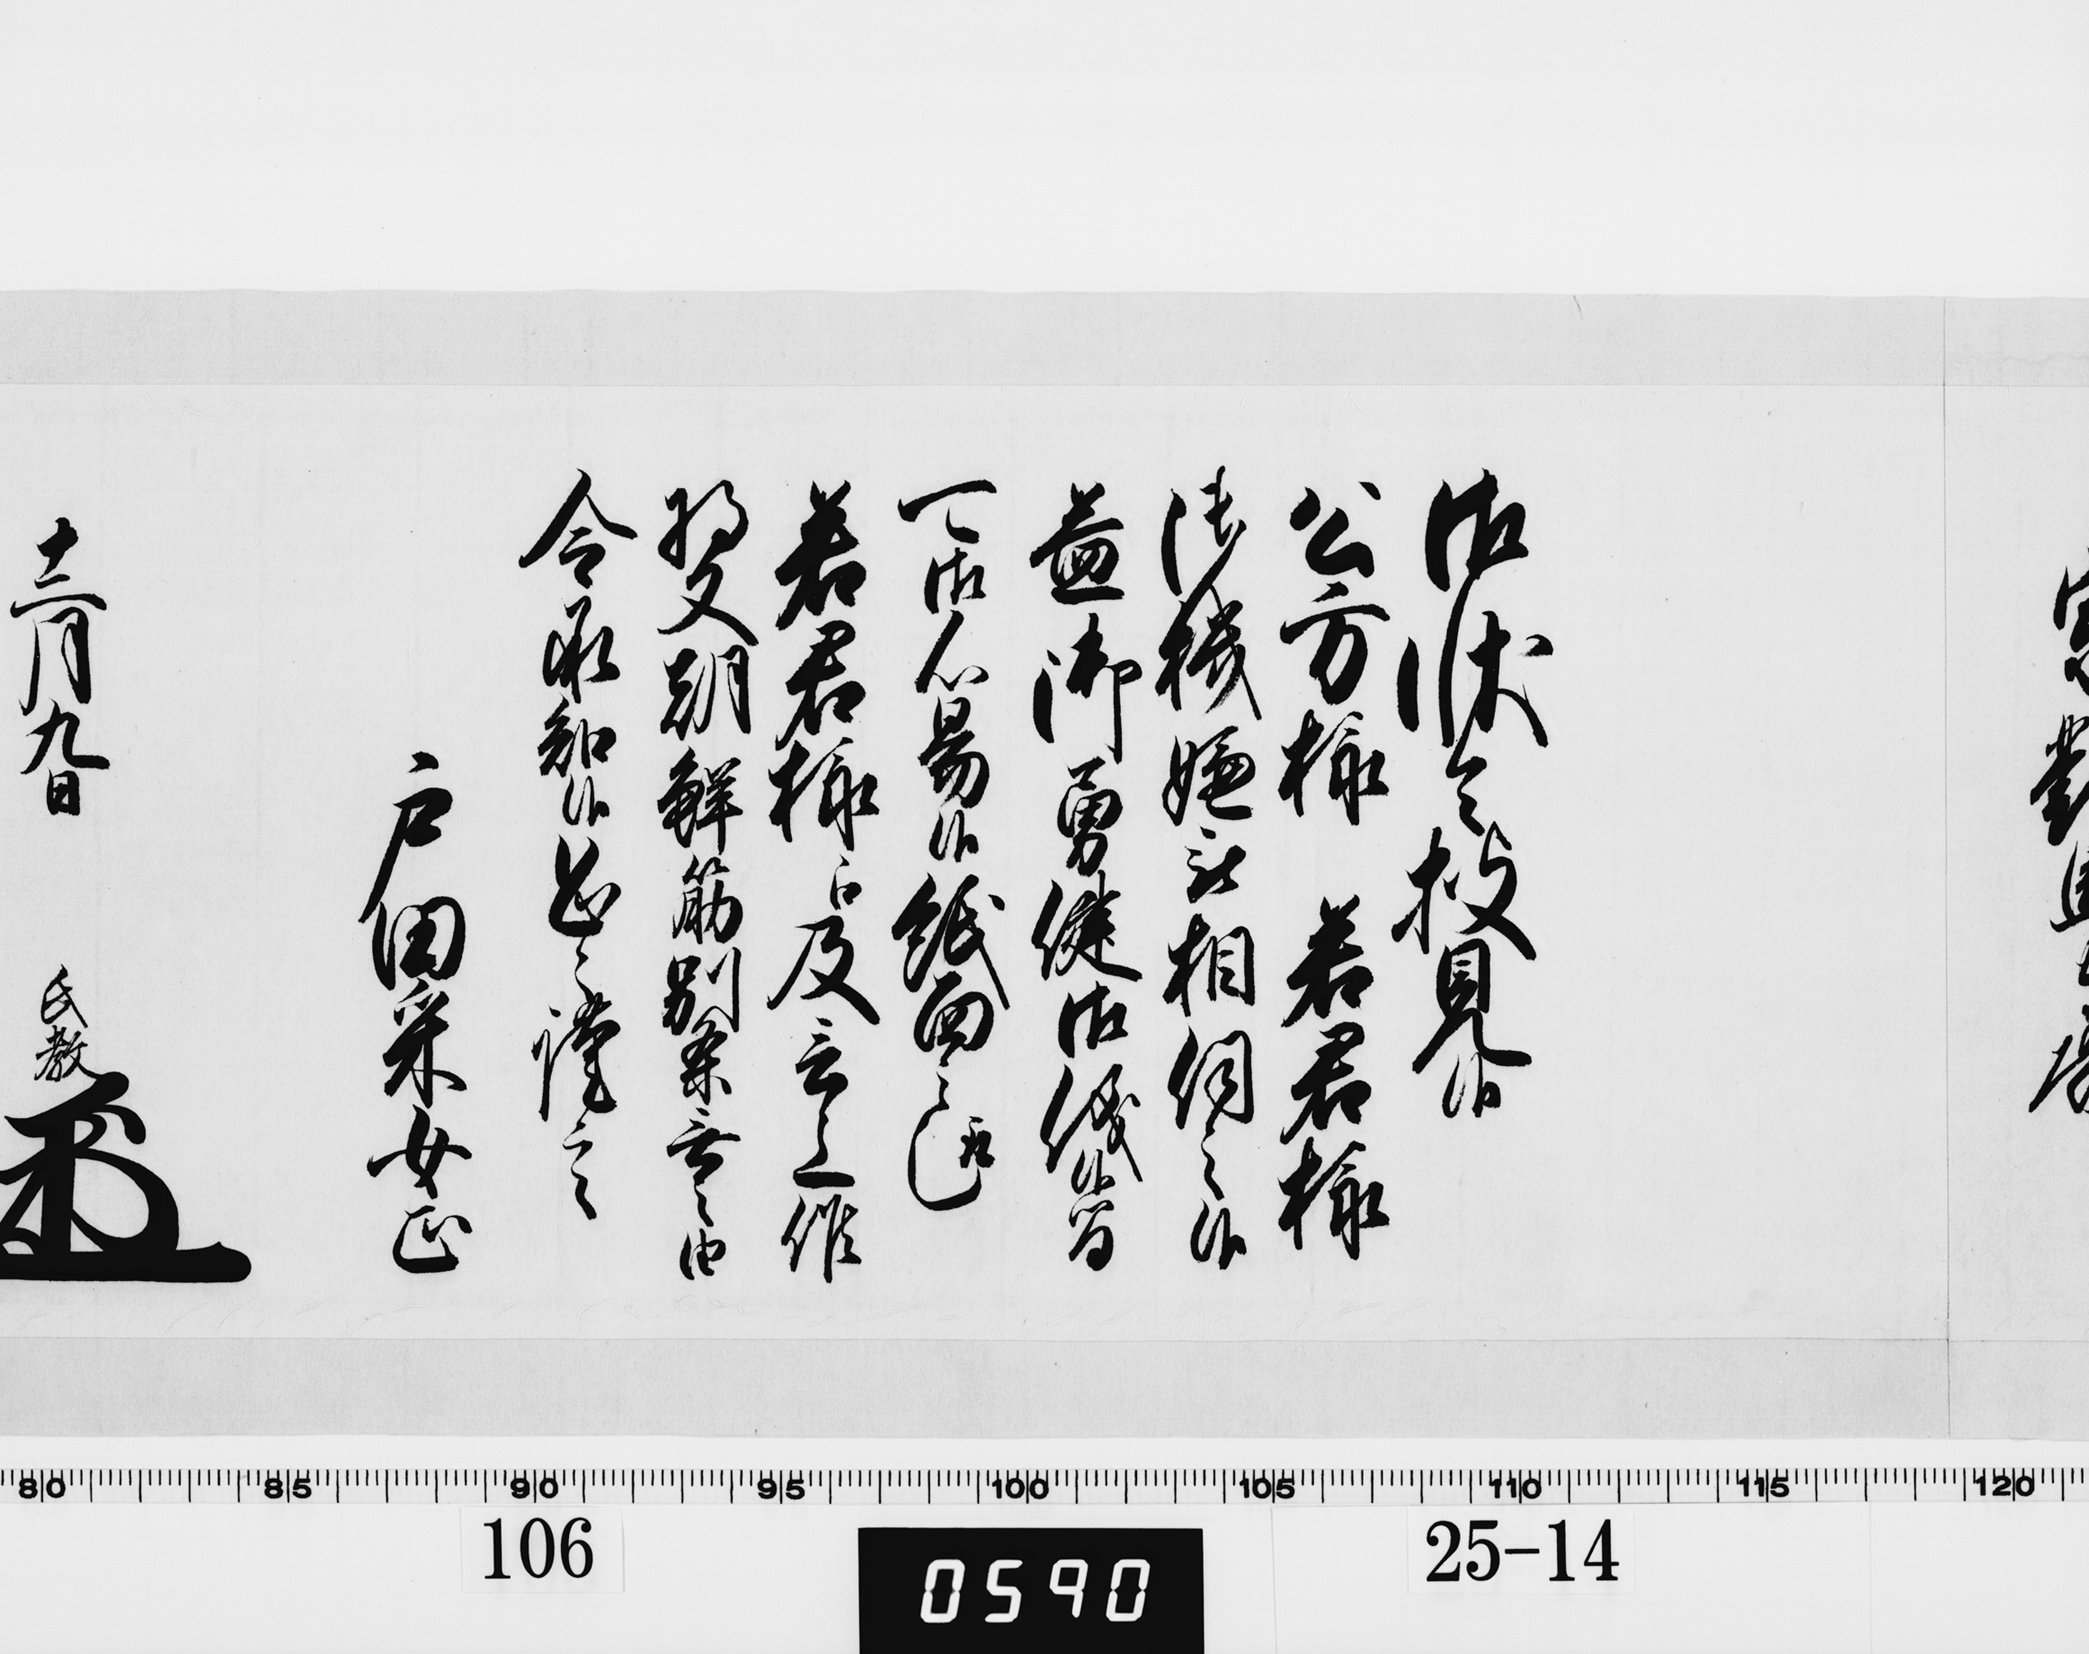 宗對馬守殿
御状令披見候
公方様 若君様
御機嫌被相伺之候
益御勇健御儀候間
可御心易候紙面之趣
若君様 及言上候
将又朝鮮筋別条無之由
令承知候恐々謹言
戸田采女正
十二月九日 氏教
80 85 90 95 100 105 110 115 120
106 25-14
0590